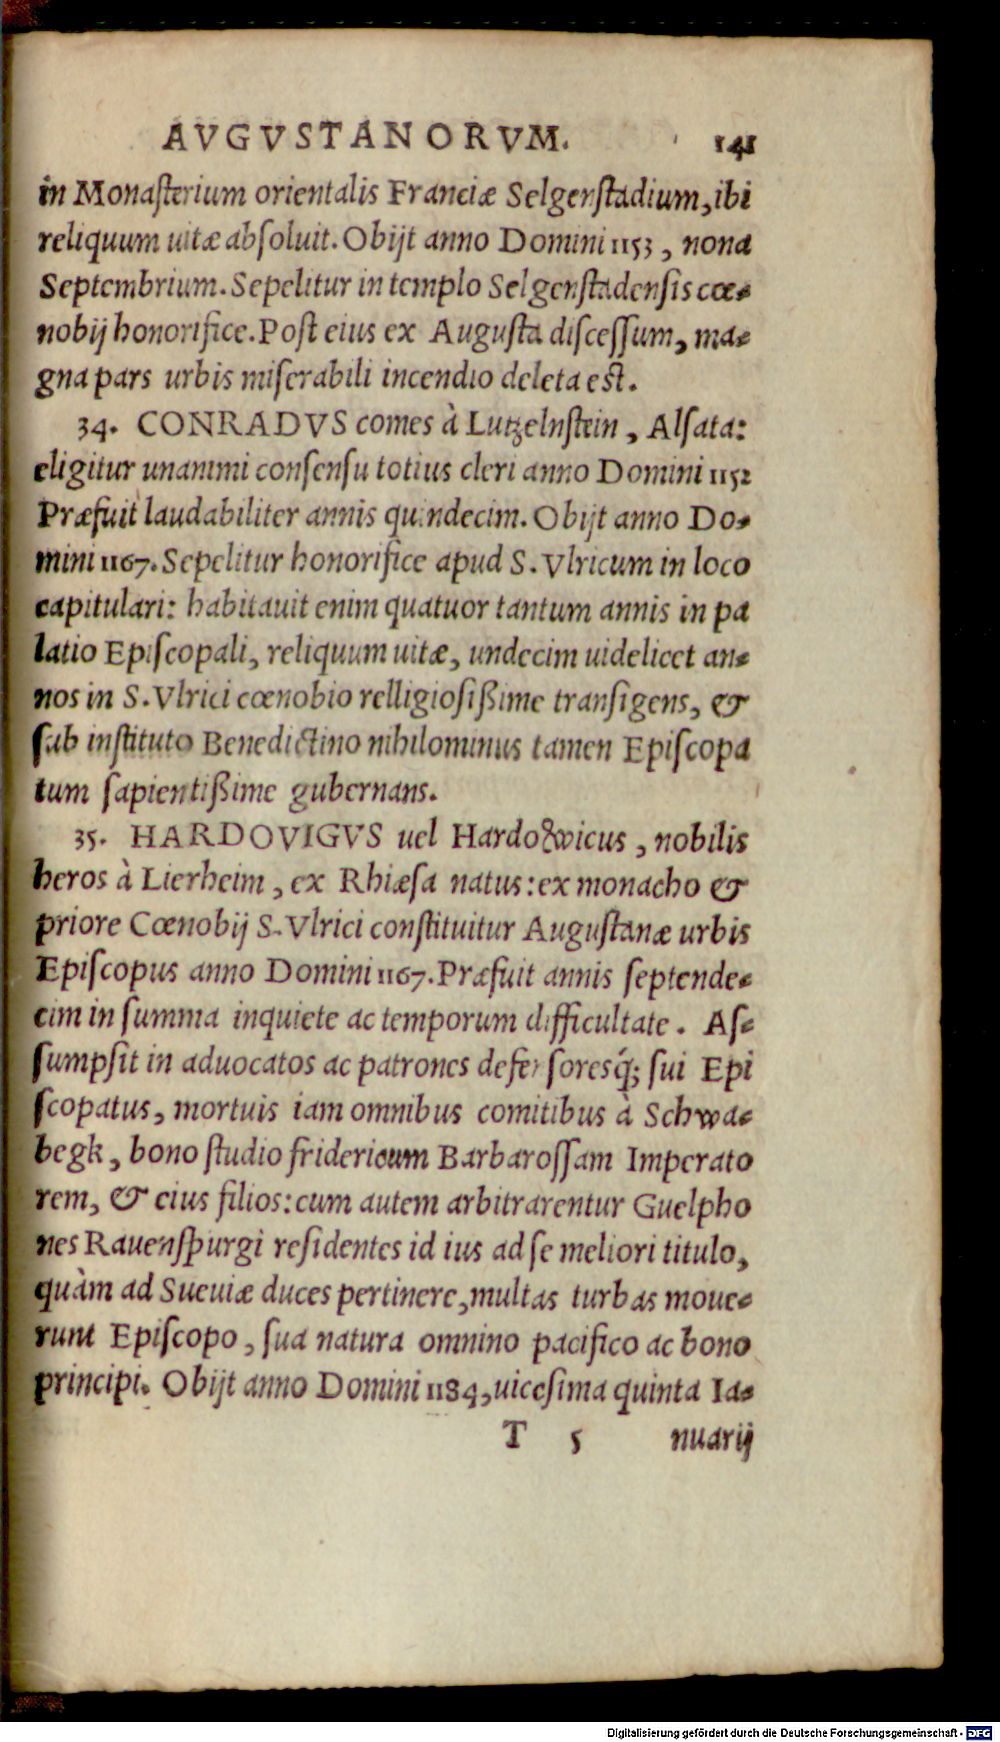 AVGVSTANORVM. 141
in Monasterium orientalis Franciæ Selgenstadium, ibi
reliquum uitæ absoluit. Obijt anno Domini 1153, nona
Septembrium. Sepelitur in templo Selgenstadensis cœ-
nobij honorifice. Post eius ex Augusta discessum, ma-
gna pars urbis miserabili incendio deleta est.
34. CONRADVS comes à Lutzelnstein, Alsata:
eligitur unanimi consensu totius cleri anno Domini 1152
Præfuit laudabiliter annis quindecim. Obijt anno Do-
mini 1167. Sepelitur honorifice apud S. Vlricum in loco
capitulari: habitauit enim quatuor tantum annis in pa
latio Episcopali, reliquum uitæ, undecim uidelicet an-
nos in S. Vlrici cœnobio relligiosißime transigens, &
sub instituto Benedictino nihilominus tamen Episcopa
tum sapientißime gubernans.
35. HARDOVIGVS uel Hardowicus, nobilis
heros à Lierheim, ex Rhiæsa natus: ex monacho &
priore Cœnobij S. Vlrici constituitur Augustanæ urbis
Episcopus anno Domini 1167. Præfuit annis septende-
cim in summa inquiete ac temporum difficultate. As-
sumpsit in aduocatos ac patrones defensoresq́; sui Epi
scopatus, mortuis iam omnibus comitibus à Schwa-
begk, bono studio fridericum Barbarossam Imperato
rem, & eius filios: cum autem arbitrarentur Guelpho
nes Rauenspurgi residentes id ius ad se meliori titulo,
quàm ad Sueuiæ duces pertinere, multas turbas moue-
runt Episcopo, sua natura omnino pacifico ac bono
principi. Obijt anno Domini 1184, uicesima quinta Ia-
T 5 nuarij
Digitalisierung gefördert durch die Deutsche Forschungsgemeinschaft - DFG